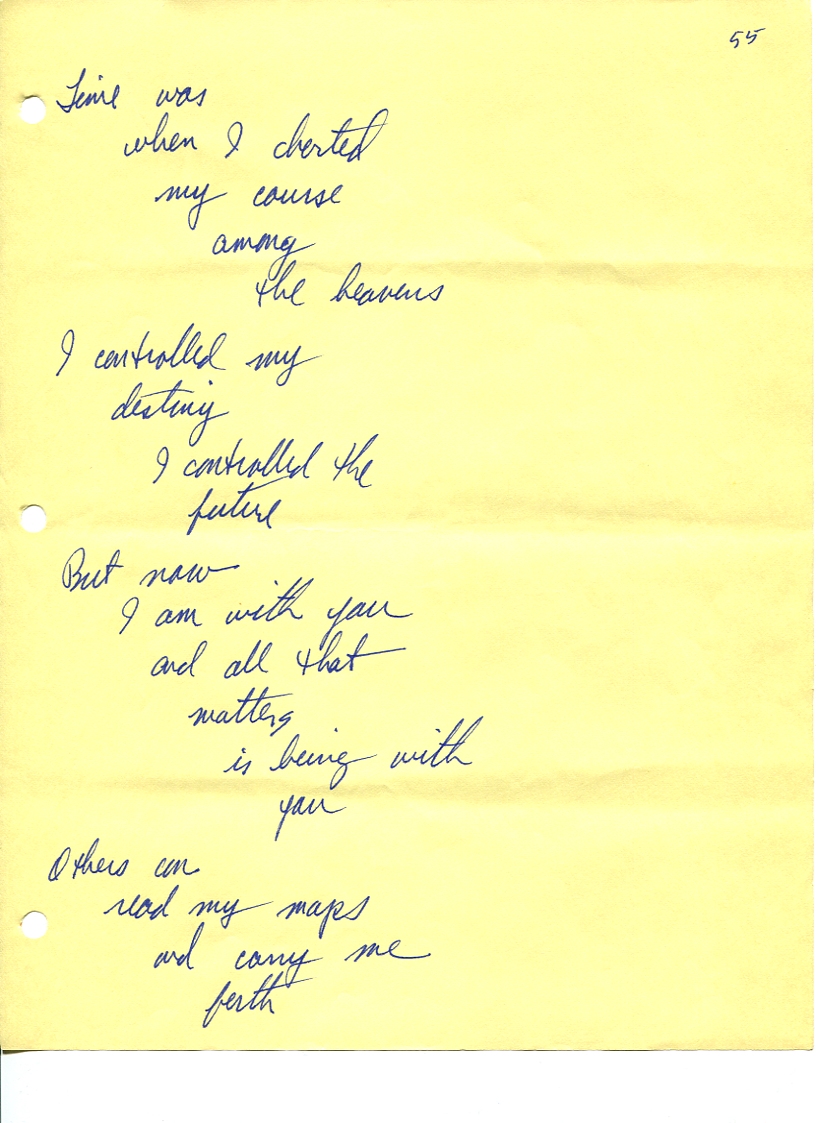 55
Time was
when I charted
my course
among
the heavens
I controlled my
destiny
I controlled the
future
But now
I am with you
and all that
matters
is being with
you
Others can
read my maps
and carry me
forth